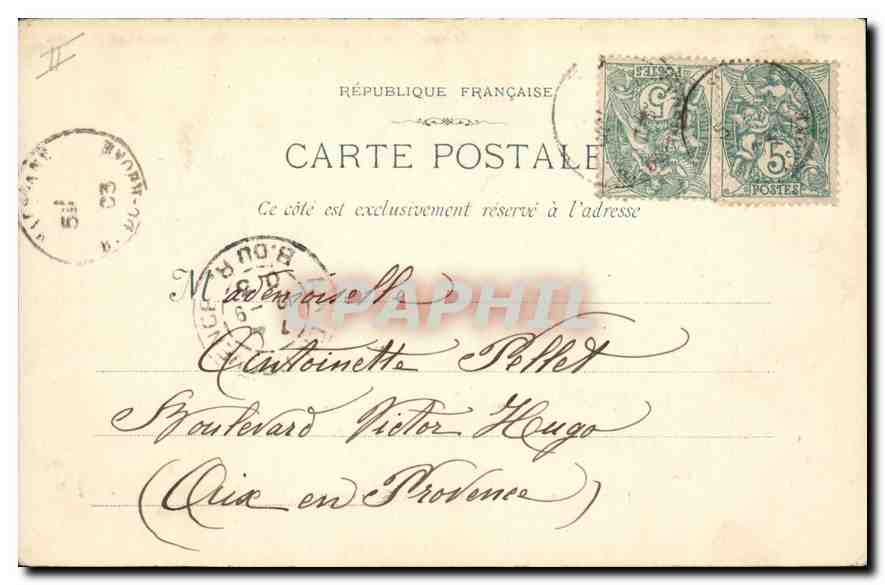 II
RÉPUBLIQUE FRANÇAISE
5
POSTES
5c
POSTES
CARTE POSTALE
Ce côté est exclusivement réservé à l'adresse
03
B. DU R.
Mademoiselle
CPAPHIL
Antoinette Pellet
Boulevard Victor Hugo
(Aix en Provence)